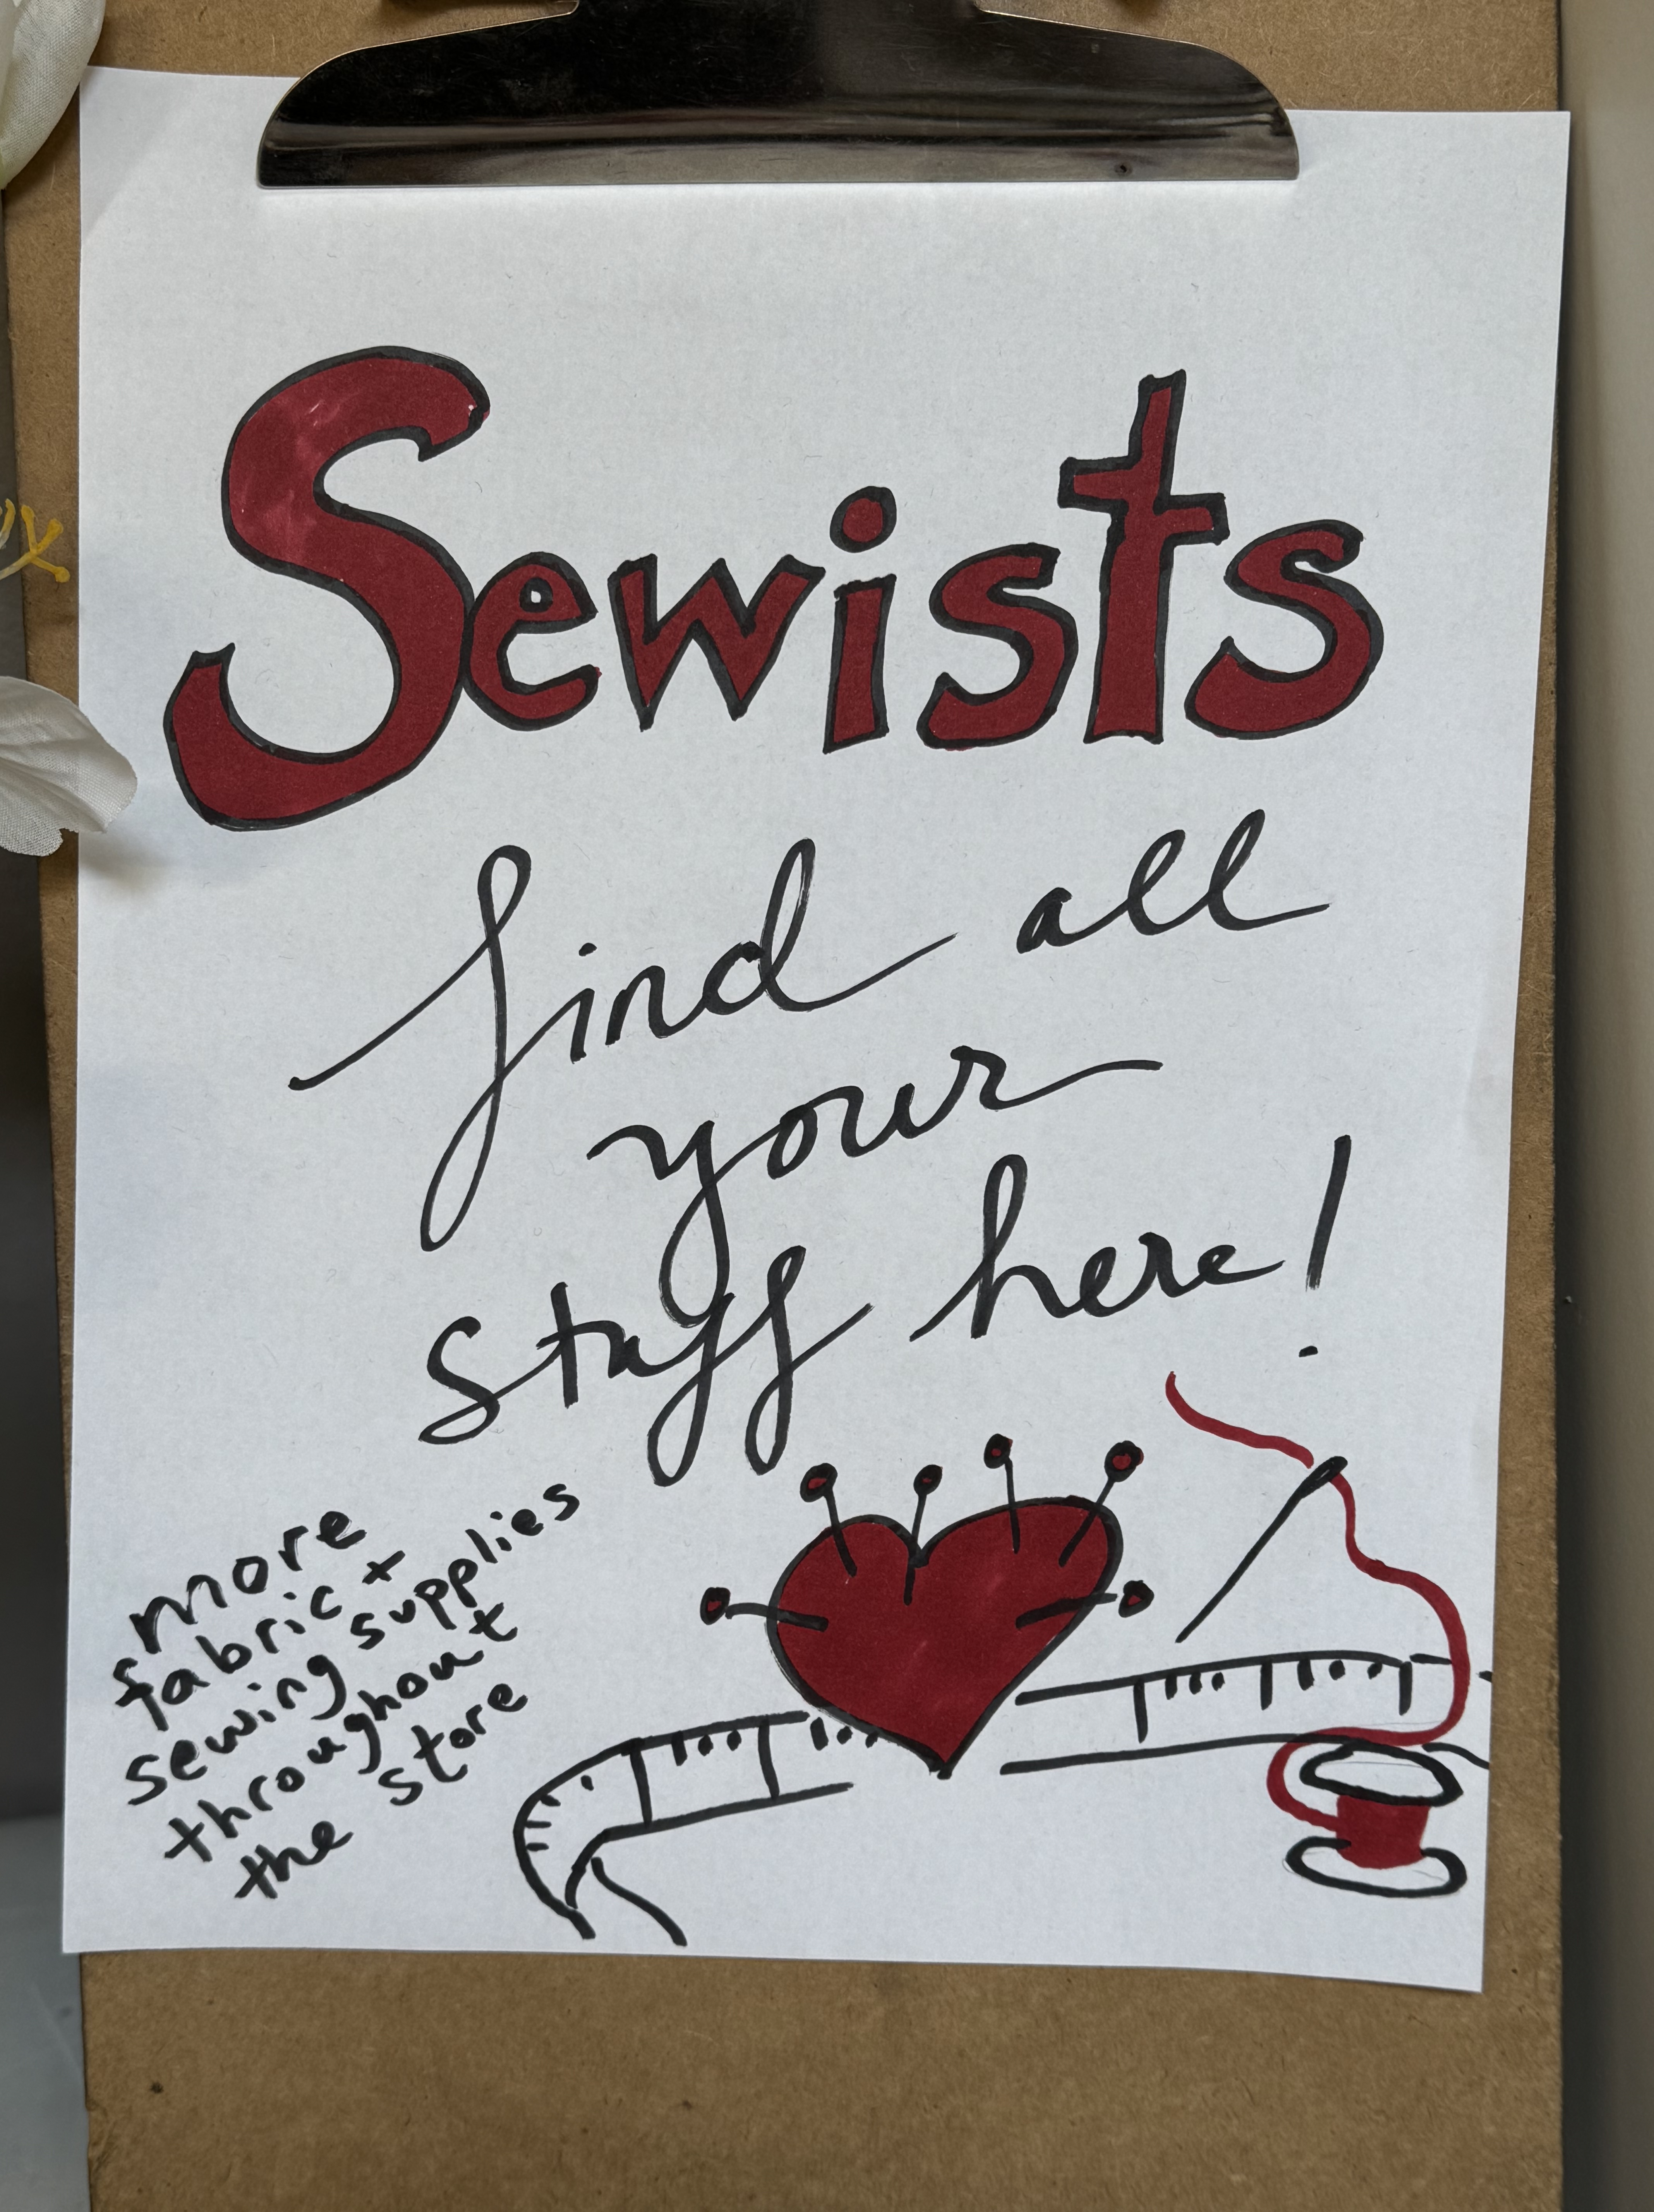 Sewists
find all
your
stuff here!
more
fabric +
sewing supplies
throughout
the store